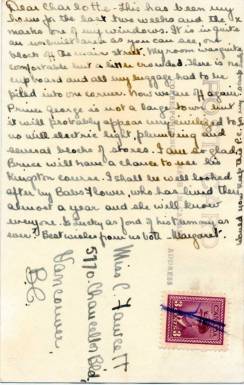 Dear Charlotte - This has been my
home for the last two weeks and the X
marks one of my windows. It is quite
an as you can see, one
block off the main street. My room was quite
comfortable but a little crowded. There is no
cupboard and all my luggage had to be
piled into one corner. Now we're off again.
Prince George is not a large town but
it will probably appear to
us with electric light, plumbing and
several blocks of stores. I am so glads
Bruce will have a chance to use his
Kingston course. I shall be well looked
after by Babs Flower, who has lived there
almost a year and she will know
everyone. Is Lucky as fond of his tummy as
ever? Best wishes from us both - Margaret.
Miss C. Fawcett
5770 Chancellor Blvd,
Vancouver,
B.C.
ADDRESS
3 3